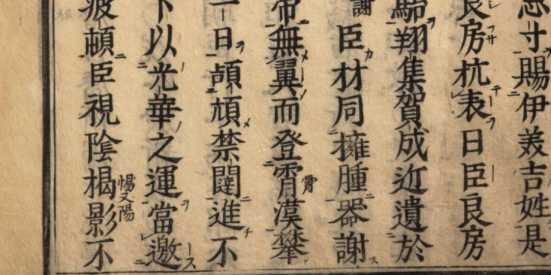 寸賜伊美吉姓是
良房抗表曰臣良房
翔集賀成近遺於
臣材同擁腫器謝
無翼而登霄漢攀
日頡頏禁闥進不
下以光華之運當邀
疲頓臣視陰楬影不